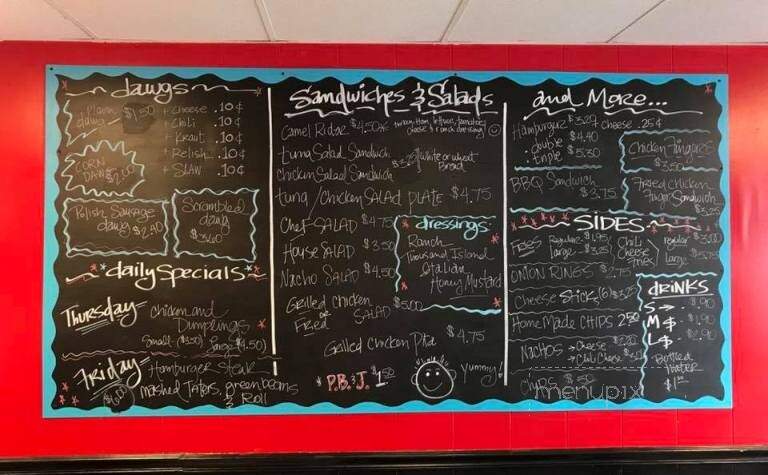 dawgs
Plain dawg $1.50
+ Cheese .10¢
+ Chili .10¢
+ Kraut .10¢
+ Relish .10¢
+ SLAW .10¢
CORN DAWG $2.00
Polish Sausage
dawg $2.40
Scrambled
dawg
$3.60
daily Specials
Thursday
chicken and
Dumplings
Small ($3.50) Large ($4.50)
Friday
Hamburger Steak
mashed Taters, green beans
& Roll
$6.00
Sandwiches & Salads
Camel Rider $4.50
tuna Salad Sandwich
chicken Salad Sandwich
$3.25
white or wheat
Bread
tuna / Chicken SALAD PLATE $4.75
Chef SALAD $4.75
House SALAD $3.50
Nacho SALAD $4.50
dressings
Ranch
Thousand Island
Italian
Honey Mustard
Grilled chicken
or
Fried
SALAD
$5.00
Grilled Chicken Pita $4.75
P.B. & J. $1.50
yummy!
and More...
Hamburger $3.25 cheese .25¢
double $4.40
triple $5.30
Chicken fingers
$3.50
BBQ Sandwich $3.75
Fried chicken
finger Sandwich
$3.25
SIDES
Fries Regular $1.95
Large
Chili
Cheese
Fries
regular
large
ONION RINGS $2.75
Cheese Sticks (6)
Home Made CHIPS 2.50
NACHOS → Cheese
→ Chili Cheese
Chips .50
DRINKS
S → .90
M
L
Bottled
Water
$1.00
menupix